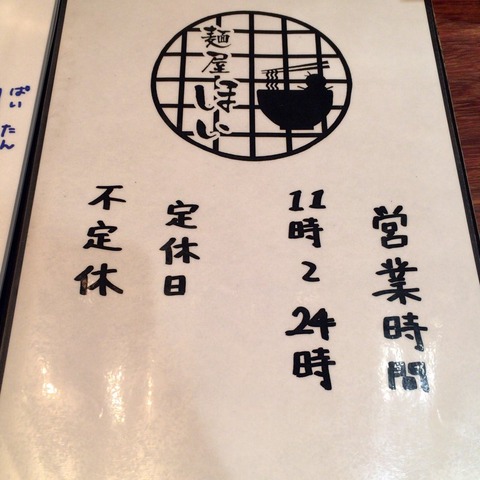 麺屋
ほぃ
営業時間
11時〜24時
定休日
不定休
ぱい
たん